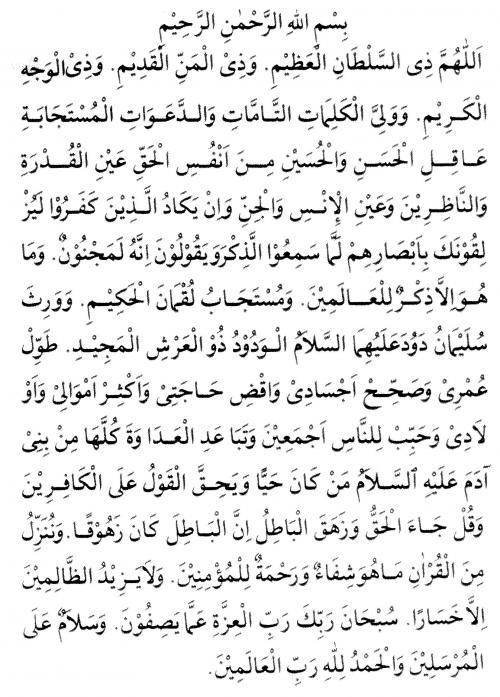 بِسْمِ اللهِ الرَّحْمٰنِ الرَّحِيْمِ
اَللّٰهُمَّ ذِى السَّلْطَانِ الْعَظِيْمِ. وَذِىْ الْمَنِّ الْقَدِيْمِ. وَذِىْ الْوَجْهِ
الْكَرِيْمِ. وَوَلِيِّ الْكَلِمَاتِ التَّامَّاتِ وَالدَّعَوَاتِ الْمُسْتَجَابَةِ
عَاقِلِ الْحَسَنِ وَالْحُسَيْنِ مِنَ اَنْفُسِ الْحَقِّ عَيْنِ الْقُدْرَةِ
وَالنَّاظِرِيْنَ وَعَيْنِ الْاِنْسِ وَالْجِنِّ وَاِنْ يَكَادُ الَّذِيْنَ كَفَرُوْا لَيُزْ
لِقُوْنَكَ بِاَبْصَارِهِمْ لَمَّا سَمِعُوْا الذِّكْرَ وَيَقُوْلُوْنَ اِنَّهُ لَمَجْنُوْنٌ. وَمَا
هُوَ اِلَّا ذِكْرٌ لِلْعَالَمِيْنَ. وَمُسْتَجَابُ لُقْمَانَ الْحَكِيْمِ. وَوَرِثَ
سُلَيْمَانُ دَوُدَ عَلَيْهِمَا السَّلَامُ الْوَدُوْدُ ذُو الْعَرْشِ الْمَجِيْدِ. طَوِّلْ
عُمْرِىْ وَصَحِّحْ اَجْسَادِىْ وَاقْضِ حَاجَتِىْ وَاَكْثِرْ اَمْوَالِىْ وَاَوْ
لَادِىْ وَحَبِّبْ لِلنَّاسِ اَجْمَعِيْنَ وَتَبَا عَدِ الْعَدَا وَةَ كُلَّهَا مِنْ بَنِىْ
آدَمَ عَلَيْهِ السَّلَامُ مَنْ كَانَ حَيًّا وَيَحِقَّ الْقَوْلُ عَلَى الْكَافِرِيْنَ
وَقُلْ جَاءَ الْحَقُّ وَزَهَقَ الْبَاطِلُ اِنَّ الْبَاطِلَ كَانَ زَهُوْقًا. وَنُنَزِّلُ
مِنَ الْقُرْاٰنِ مَا هُوَ شِفَاءٌ وَرَحْمَةٌ لِلْمُؤْمِنِيْنَ. وَلَا يَزِيْدُ الظَّالِمِيْنَ
اِلَّا خَسَارًا. سُبْحَانَ رَبِّكَ رَبِّ الْعِزَّةِ عَمَّا يَصِفُوْنَ. وَسَلَامٌ عَلَى
الْمُرْسَلِيْنَ وَالْحَمْدُ لِلّٰهِ رَبِّ الْعَالَمِيْنَ.